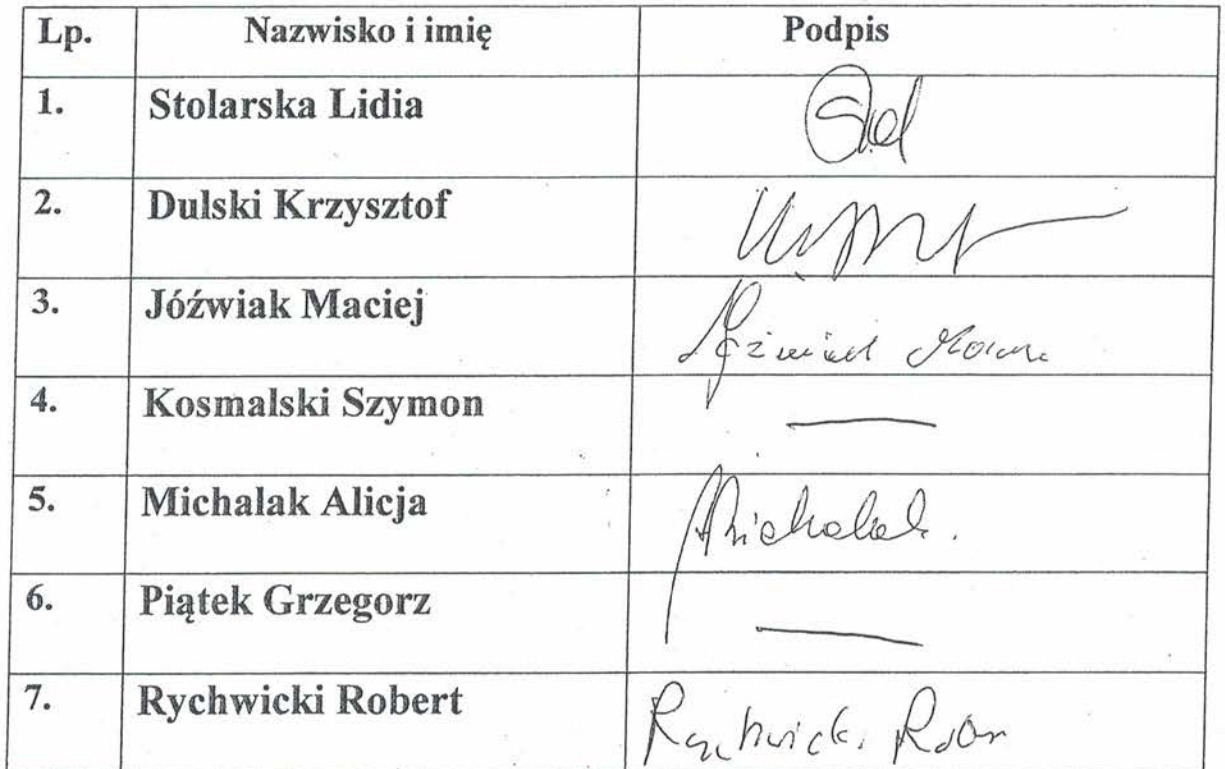 Lp. Nazwisko i imię Podpis
1. Stolarska Lidia
2. Dulski Krzysztof
3. Jóźwiak Maciej
4. Kosmalski Szymon
5. Michalak Alicja Michalak.
6. Piątek Grzegorz
7. Rychwicki Robert Rychwicki